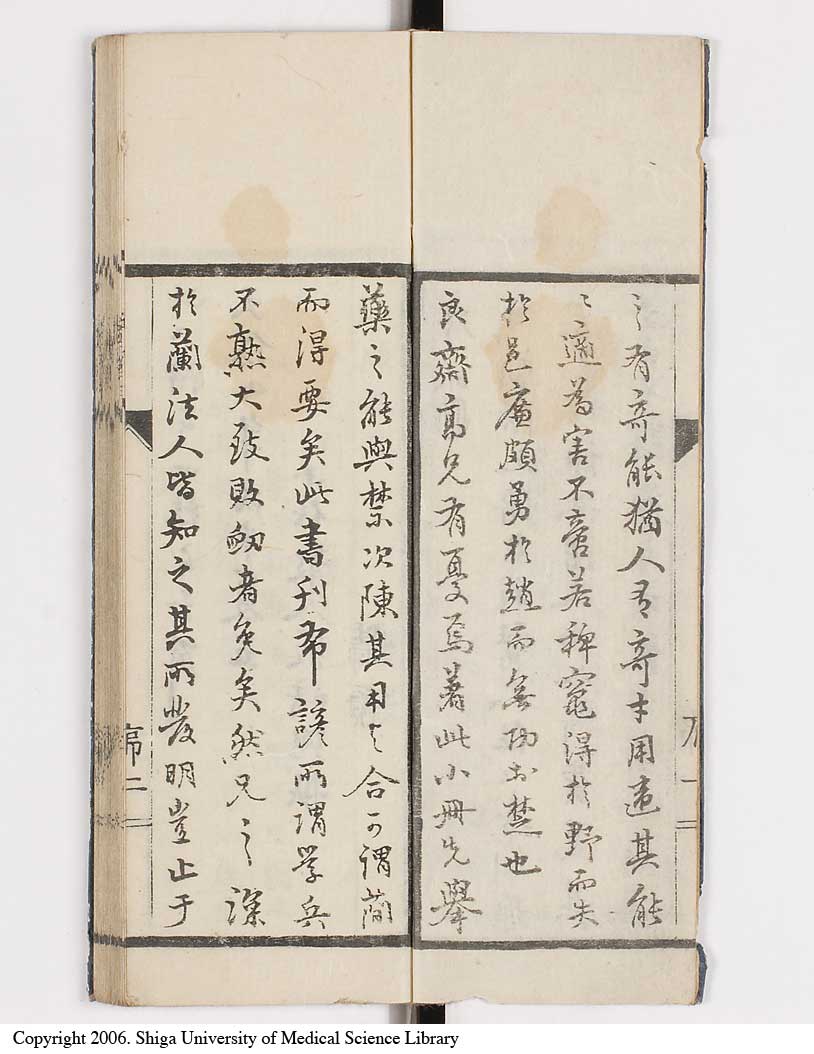 之有奇能猶人有奇才用違其能
〻適為害不啻若裨竈得於野而失
於邑廉頗勇於趙而無功於楚也
良齋高兄有憂焉著此小冊先擧
藥之能與禁次陳其用之合可謂簡
而得要矣此書刊布諺所謂学兵
不熟大致敗衂者免矣然兄之深
於蘭法人皆知之其所發明豈止于
序二
Copyright 2006. Shiga University of Medical Science Library